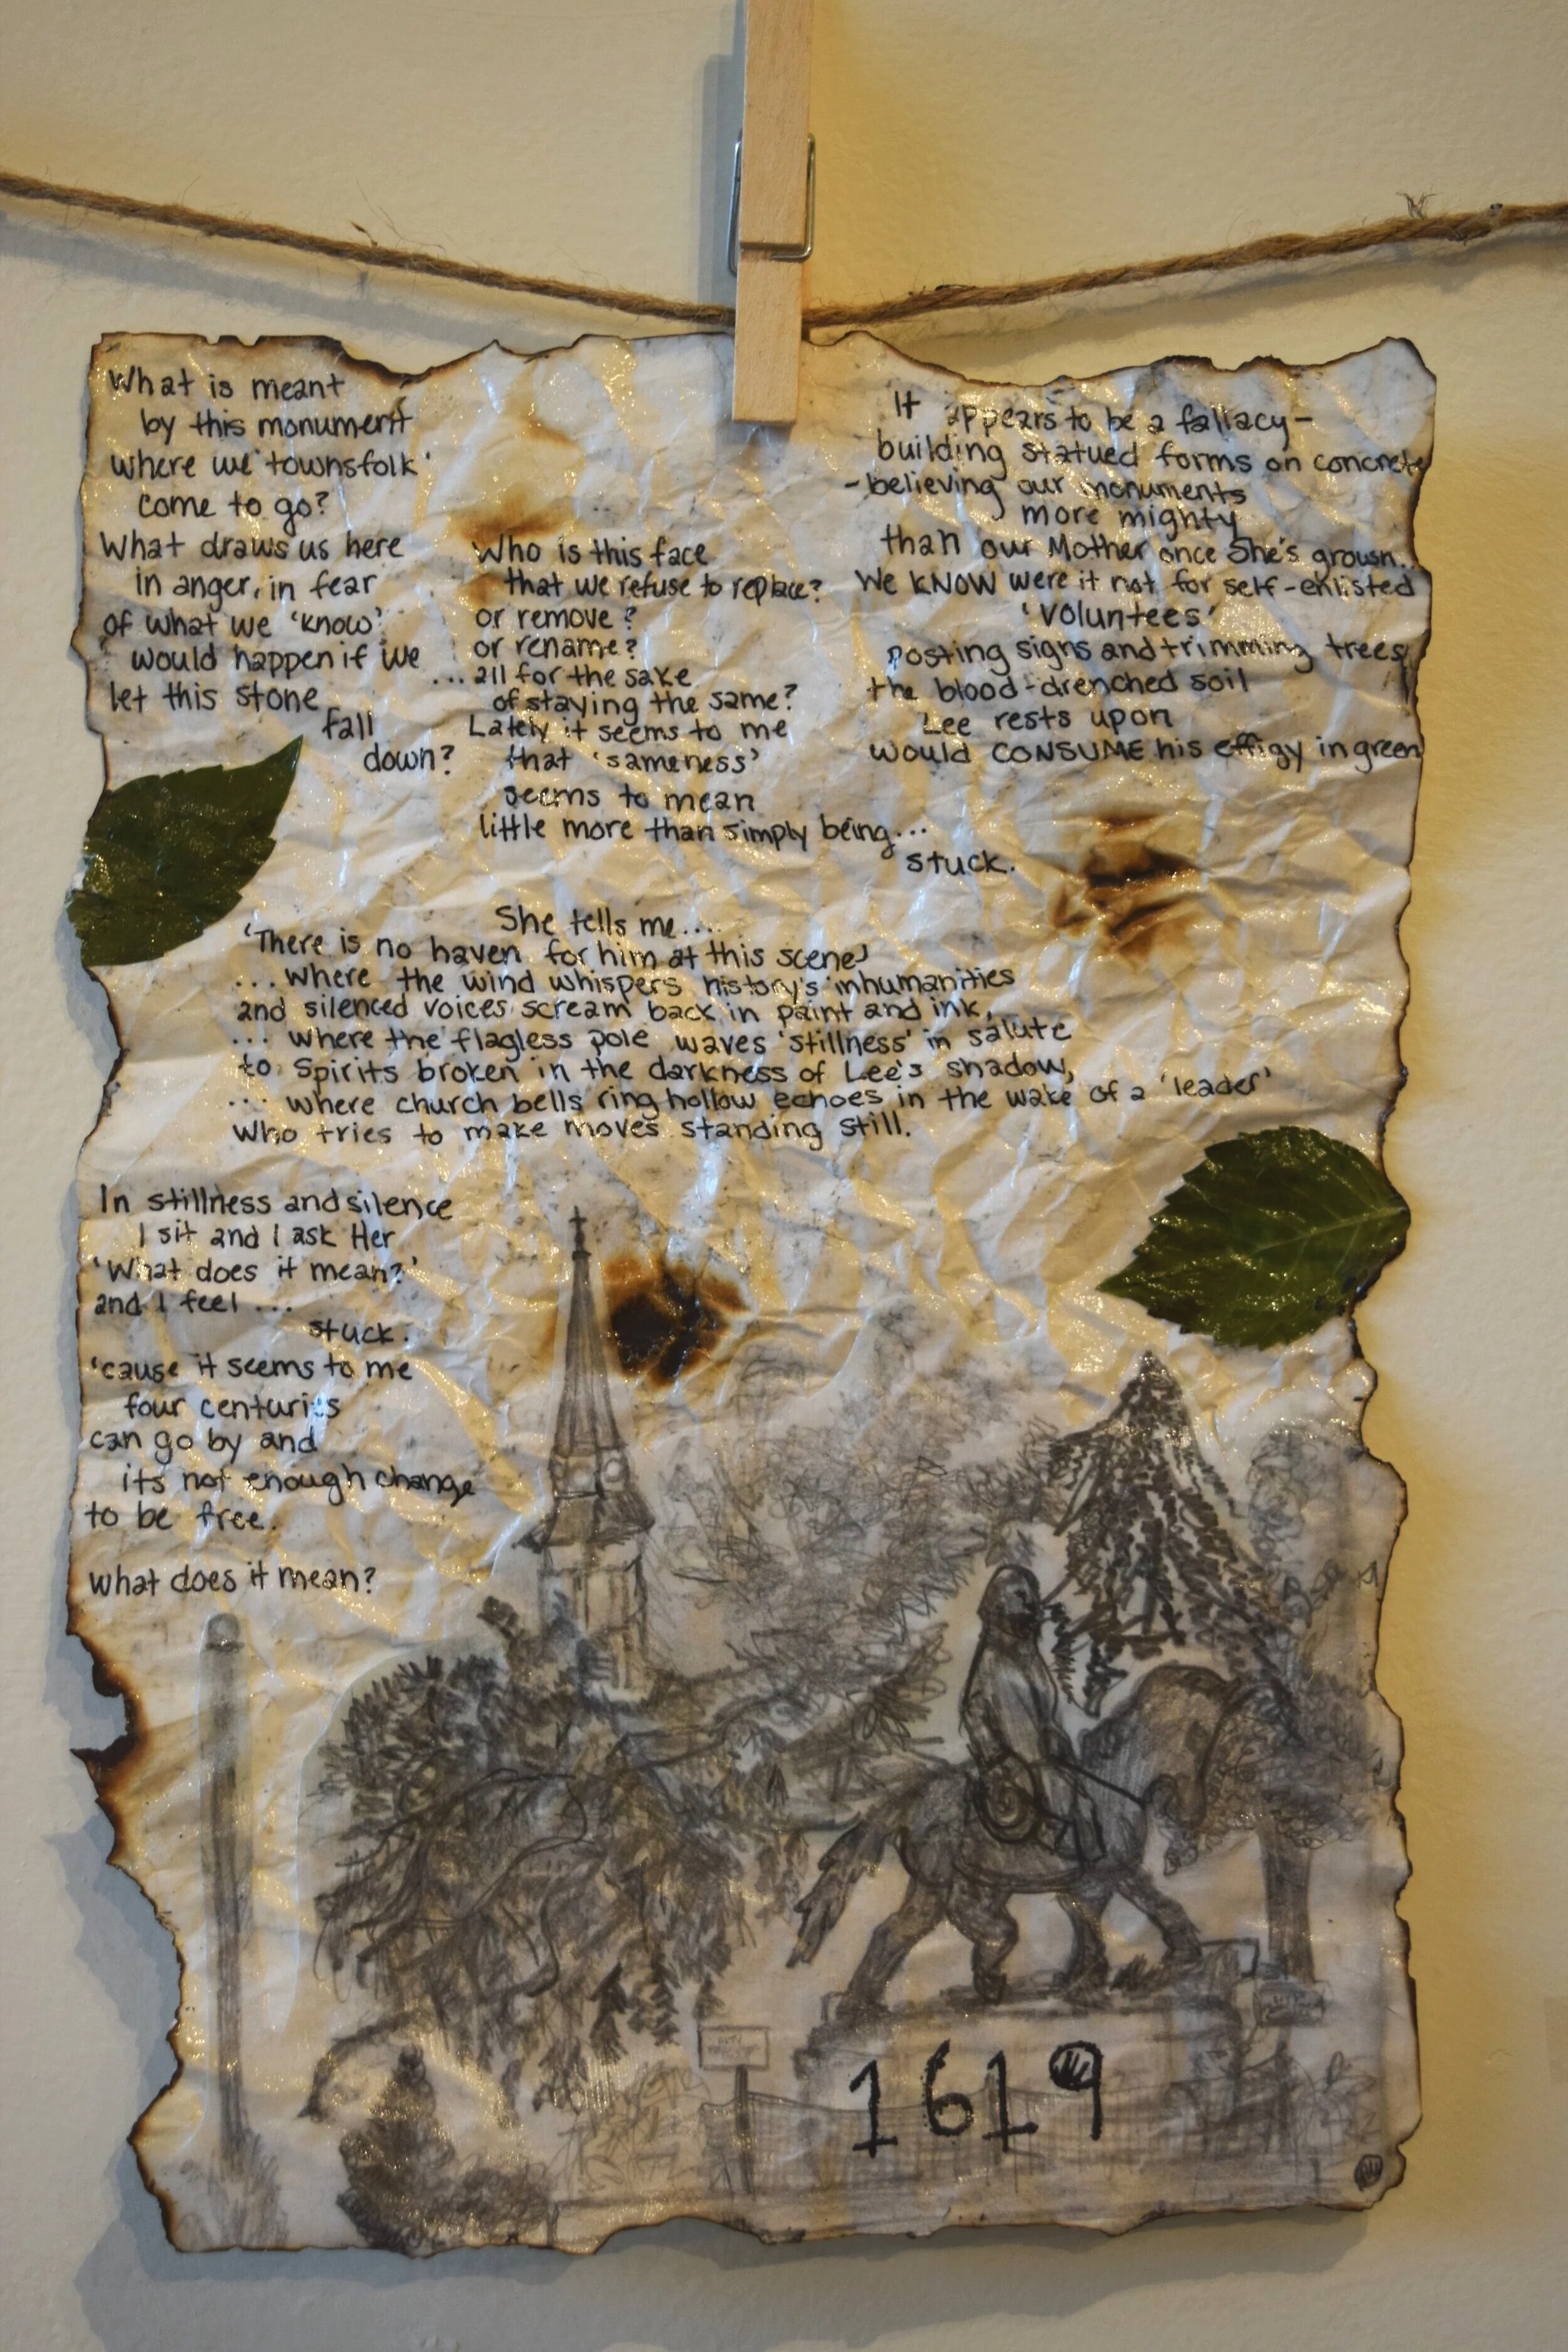 What is meant
by this monument
where we 'townsfolk'
come to go?
What draws us here
in anger, in fear
of what we 'know'
would happen if we
let this stone
fall
down?
Who is this face
that we refuse to replace?
or remove?
or rename?
...all for the sake
of staying the same?
Lately it seems to me
that 'sameness'
seems to mean
little more than simply being...
stuck.
It appears to be a fallacy-
building statued forms on concrete
-believing our monuments
more mighty
than our Mother once She's grown..
We KNOW were it not for self-enlisted
'Voluntees'
posting signs and trimming trees
the blood-drenched soil
Lee rests upon
would CONSUME his effigy in green
She tells me....
'There is no haven for him at this scene'
...where the wind whispers history's inhumanities
and silenced voices scream back in paint and ink,
... where the flagless pole waves 'stillness' in salute
to Spirits broken in the darkness of Lee's shadow,
... where church bells ring hollow echoes in the wake of a 'leader'
Who tries to make moves standing still.
In stillness and silence
I sit and I ask Her
'What does it mean?'
and I feel...
stuck.
'cause it seems to me
four centuries
can go by and
its not enough change
to be free.
what does it mean?
1619